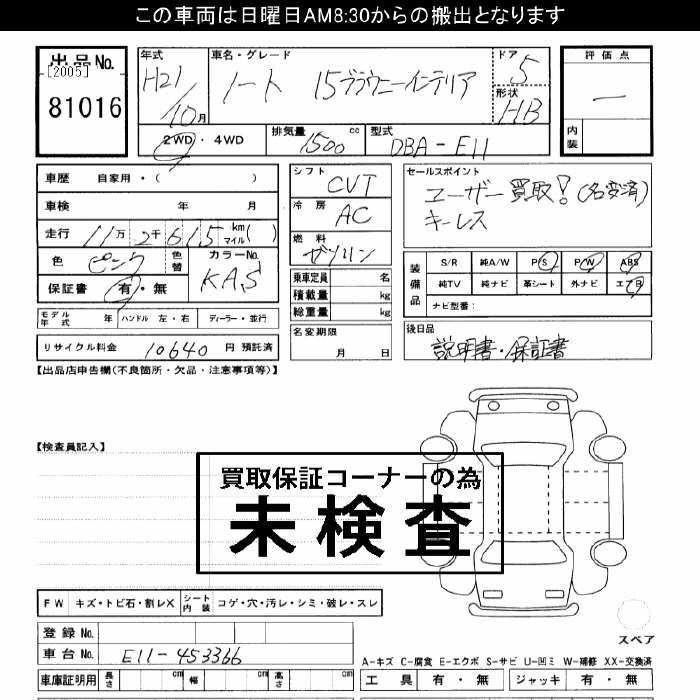 この車両は日曜日AM8:30からの搬出となります
出品No. 年式 車名・グレード ドア 評価点
[2005] H21/10月 ノート 15ブラウニーインテリア 5 一
81016 形状 HB
2WD・4WD 排気量 1500 cc 型式 DBA-E11 内装
車歴 自家用・( ) シフト CVT セールスポイント
車検 年 月 冷房 AC ユーザー買取!(名変済)
走行 11万2千615 km マイル( ) キーレス
色 ピンク 色替 カラーNo. KAS 燃料 ガソリン
保証書 有・無 乗車定員 名 装備品 S/R 純A/W P/S P/W ABS
積載量 kg 純TV 純ナビ 革シート 外ナビ エアB
総重量 kg ナビ型番:
モデル年式 年 ハンドル 左・右 ディーラー・並行 名変期限 月 日 後日品
リサイクル料金 10640 円 預託済 説明書・保証書
【出品店申告欄(不良箇所・欠品・注意事項等)】
【検査員記入】
買取保証コーナーの為
未検査
FW キズ・トビ石・割レX シート内装 コゲ・穴・汚レ・シミ・破レ・スレ
スペア
登録No.
車台No. E11-453366
A-キズ C-腐食 E-エクボ S-サビ U-凹ミ W-補修 XX-交換済
車庫証明用 長さ cm 幅 cm 高さ cm 工具 有・無 ジャッキ 有・無